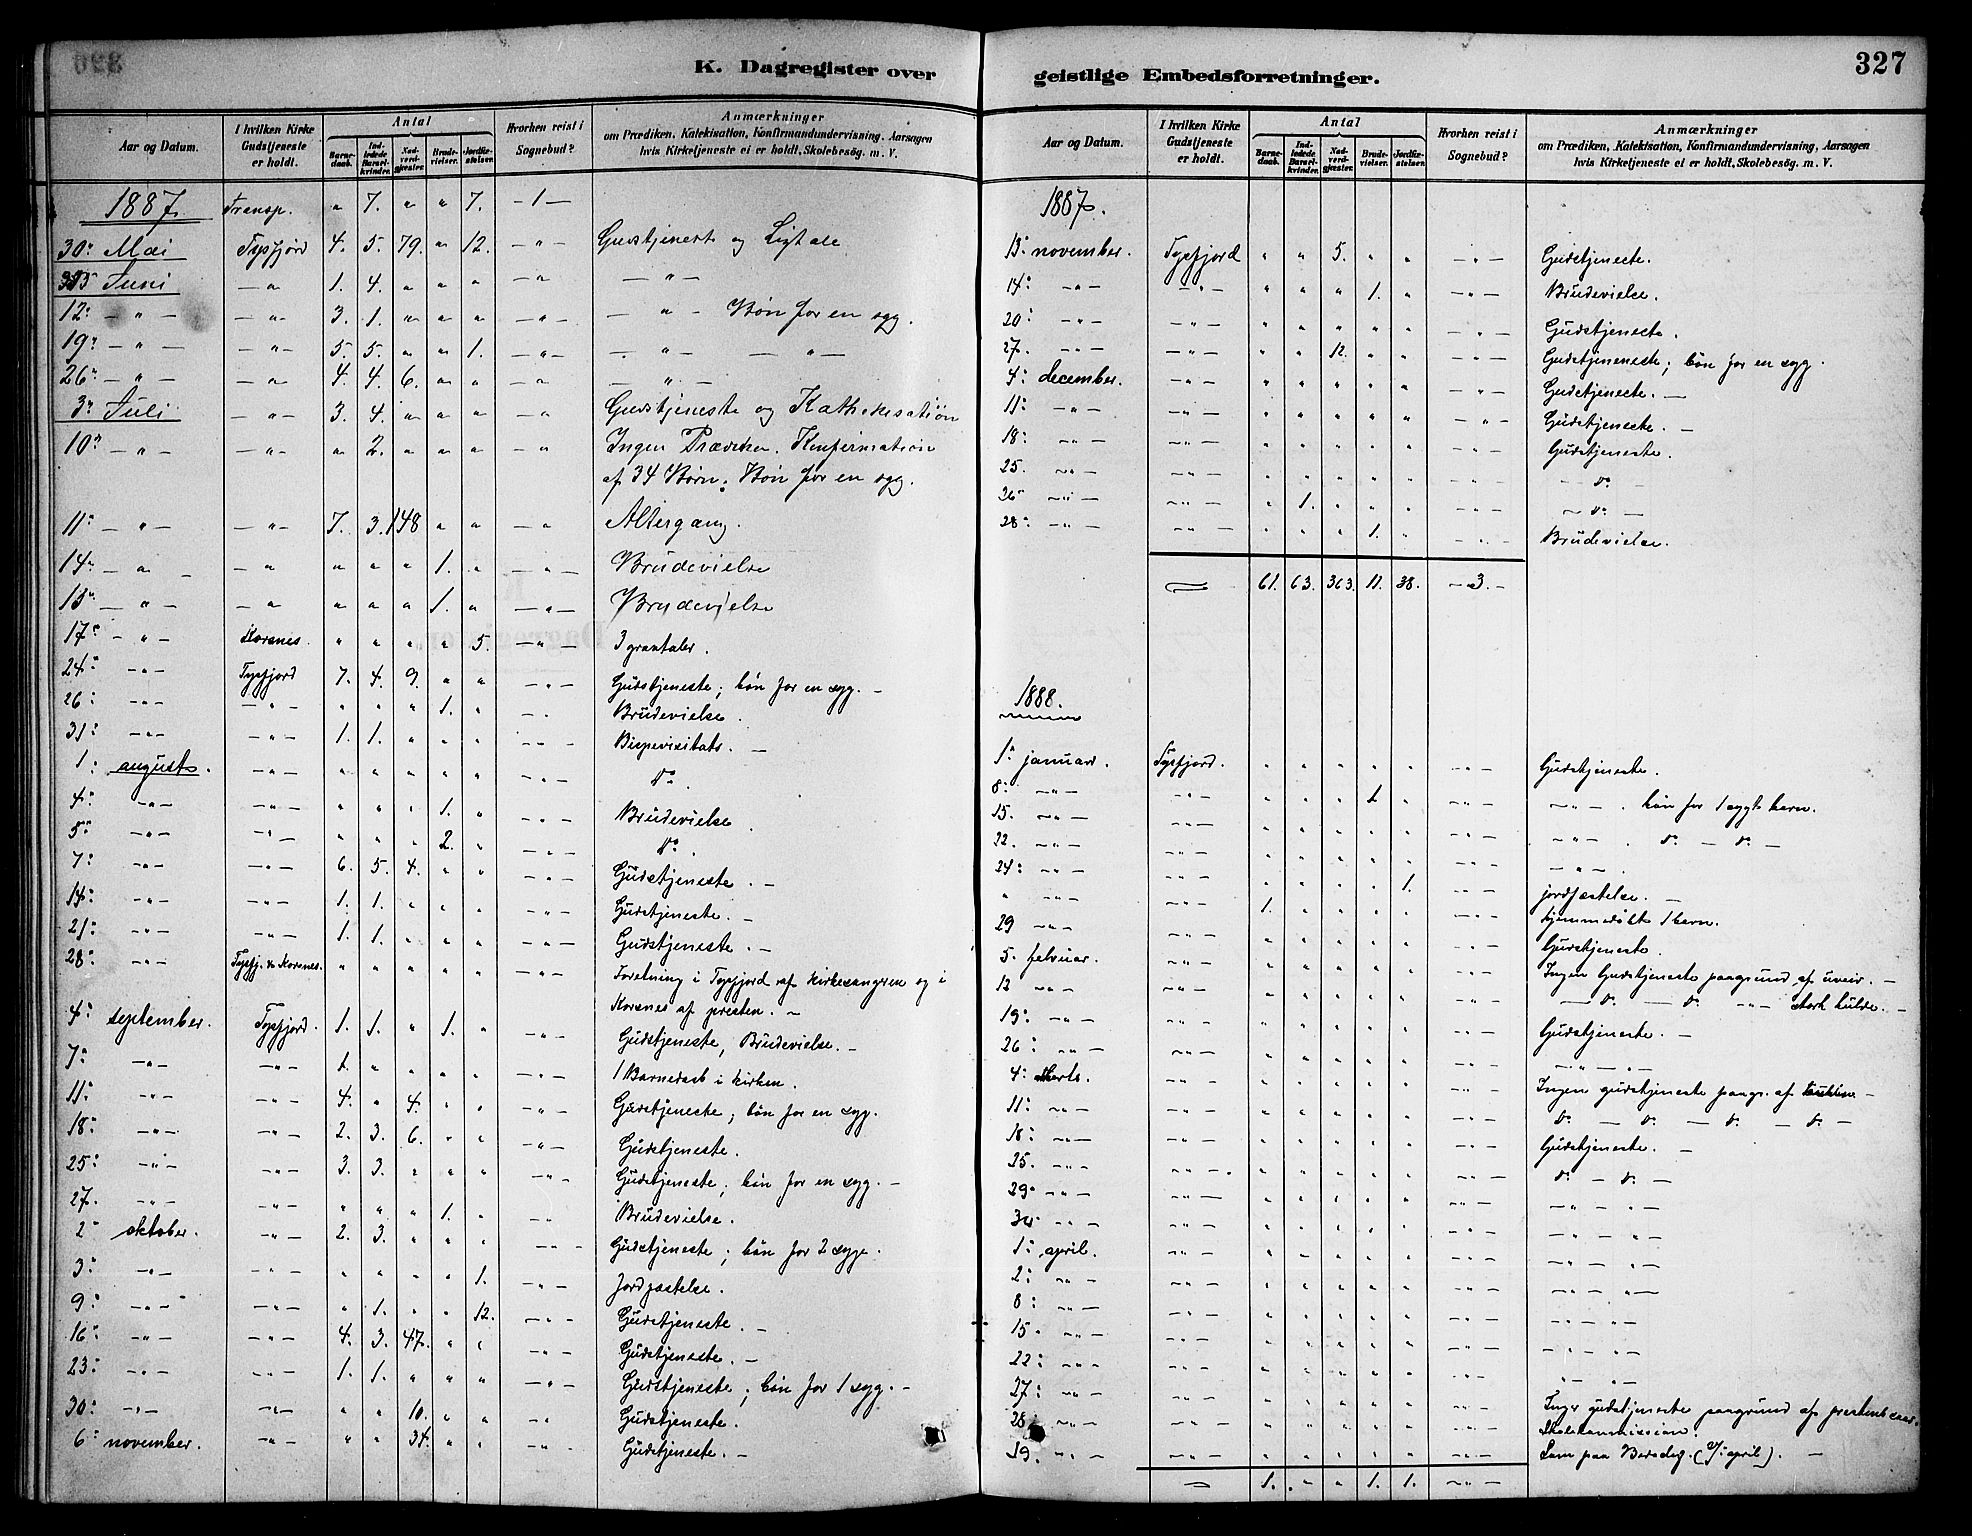 326
K. Dagregister over
Aar og Datum. I hvilken Kirke Gudstjeneste er holdt. Antal Barnedaab. Indledede Barselkvinder. Nadverdgjæster. Brudevielser. Jordfæstelser. Hvorhen reist i Sognebud? Anmærkninger om Prædiken, Katekisation, Konfirmandundervisning, Aarsagen hvis Kirketjeneste ei er holdt, Skolebesøg. m. V.
1887. Transp. " 7. " " 7. — 1 —
30: Mai Tysfjord 4. 5. 79. " 12. — " — Gudstjenest og Ligtale
Juni — " 1. 4. " " " — " — " —
12: — " — — " — 3. 1. " " " — " — — " — Bøn for en syg.
19: — " — — " — 5. 5. " " 1. — " — — " — — " —
26: — " — — " 4. 4. 6. " " — " — " —
3: Juli — " — 3. 4. " " " — " Gudstjeneste og Kathekisation
10: — " — — " — " 2. " " " — " Ingen Prædiken. Konfirmation
af 34 Børn; Bøn for en syg.
11: — " — — " — 7. 3. 148 " " — " Altergang.
14: — " — — " " " " 1. " — " — Brudevielse
15: — " — — " " " " 1. " — " — Brudevielse
17: — " — Korsnes. " " " " 5. — " — 3 gravtaler.
24: — " — Tysfjord 7. 4. 9. " " — " — Gudstjeneste; bøn for en syg. —
26: — " — — " — " " " 1. " — " Brudevielse.
31: — " — — " — 1. 1. " " " — " — Bispevisitats. —
1: august. — " — " " " " " — " — do.
4: — " — — " — " " " 1. " — " — Brudevielse.
5: — " — — " — " " " 2. " — " — do.
7: — " — — " — 6. 5. 4. " " — " — Gudstjeneste. —
14: — " — — " — 1. 1. " " " — " — Gudstjeneste. —
21: — " — — " — 1. 1. " " " — " — Gudstjeneste. —
28: — " — Tysfj. & Korsnes. " " " " " — " — Forretning i Tysfjord af kirkesangeren og i
Korsnes af presten. —
4: september. Tysfjord. 1. 1. " 1. " — " — Gudstjeneste, Brudevielse. —
7: — " — — " — 1. " " " " — " — 1 Barnedaab i kirken.
11: — " — — " — 4. " 4. " " — " — Gudstjeneste; bøn for en syg.
18: — " — — " — 2. 3. 6. " " — " — Gudstjeneste.
25: — " — — " — 3. 3. " " " — " — Gudstjeneste; bøn for en syg. —
27. — " — — " — " " " 1. " — " Brudevielse.
2: oktober. — " — 2. 3. " " " — " — Gudstjeneste; bøn for 2 syge.
3: — " — — " — " " " " 1. — " — Jordfæstelse.
9: — " — — " — " 1. " " 12. — " — Gudstjeneste. —
16: — " — — " — 4. 3. 47. " " — " — Gudstjeneste. —
23: — " — — " — 1. 1. " " " — " — Gudstjeneste; bøn for 1 syg. —
30: — " — — " — " " 10. " " — " Gudstjeneste.
6: november. — " — " " 34. " " — " Gudstjeneste. —
327
geistlige Embedsforretninger.
Aar og Datum. I hvilken Kirke Gudstjeneste er holdt. Antal Barnedaab. Indledede Barselkvinder. Nadverdgjæster. Brudevielser. Jordfæstelser. Hvorhen reist i Sognebud? Anmærkninger om Prædiken, Katekisation, Konfirmandundervisning, Aarsagen hvis Kirketjeneste ei er holdt, Skolebesøg. m. V.
1887.
13: november. Tysfjord " " 5. " " — " — Gudstjeneste.
14: — " — — " — " " " 1. " — " — Brudevielse.
20: — " — — " — " " " " " — " — Gudstjeneste.
27. — " — — " — " " 12. " " — " — Gudstjeneneste; bøn for en syg.
4: december. — " — " " " " " — " — Gudstjeneste. —
11: — " — — " — " " " " " — " — Gudstjeneste. —
18: — " — — " — " " " " " — " — Gudstjeneste.
25. — " — — " — " " " " " — " — — do —
26: — " — — " — " 1. " " " — " — — do —
28: — " — — " — " " " 1. " — " — Brudevielse.
61. 63. 363. 11. 38. — 3. —
1888.
1: januar. Tysfjord. " " " " " — " — Gudstjeneste.
8: — " — — " — " " " 1 " — " — — " — . bøn for 1 sygt barn.
15. — " — — " — " " " " " — " — — " — do — do —
22. — " — — " — " " " " " — " — — " —
24: — " — — " — " " " " 1. — " — jordfæstelse. —
" — " — — " — 1. " " " " — " — hjemmedøbt 1 barn.
29 — " — " " " " " — " — Gudstjeneste.
5. februar. — " — " " " " " — " — Ingen Gudstjeneste paagrund af uveir. —
12 — " — — " — " " " " " — " — — do — do — " — sterk kulde. —
19: — " — — " — " " " " " — " — Gudstjeneste. —
26: — " — — " — " " " " " — " — — " — " —
4: Marts. — " — " " " " " — " — Ingen gudstjeneste paagr. af —
11: — " — — " — " " " " " — " — do — do — do — do —
18: — " — — " — " " " " " — " — Gudstjeneste. —
25. — " — — " — " " " " " — " — do — do —
29: — " — — " — " " " " " — " — — " — " —
30: — " — — " — " " " " " — " — — " — " —
1: april. — " — " " " " " — " — — " — " —
2: — " — — " — " " " " " — " — — " — " —
8 — " — — " — " " " " " — " — — " — " —
15. — " — — " — " " " " " — " — — " — " —
22: — " — — " — " " " " " — " — — " — " —
27: — " — — " — " " " " " — " — Ingen gudstjeneste paagrund af prestens
28 — " — — " — " " " " " — " — Skolekommission.
29. — " — — " — " " " " " — " — april). —
1. " " 1. 1. — " —